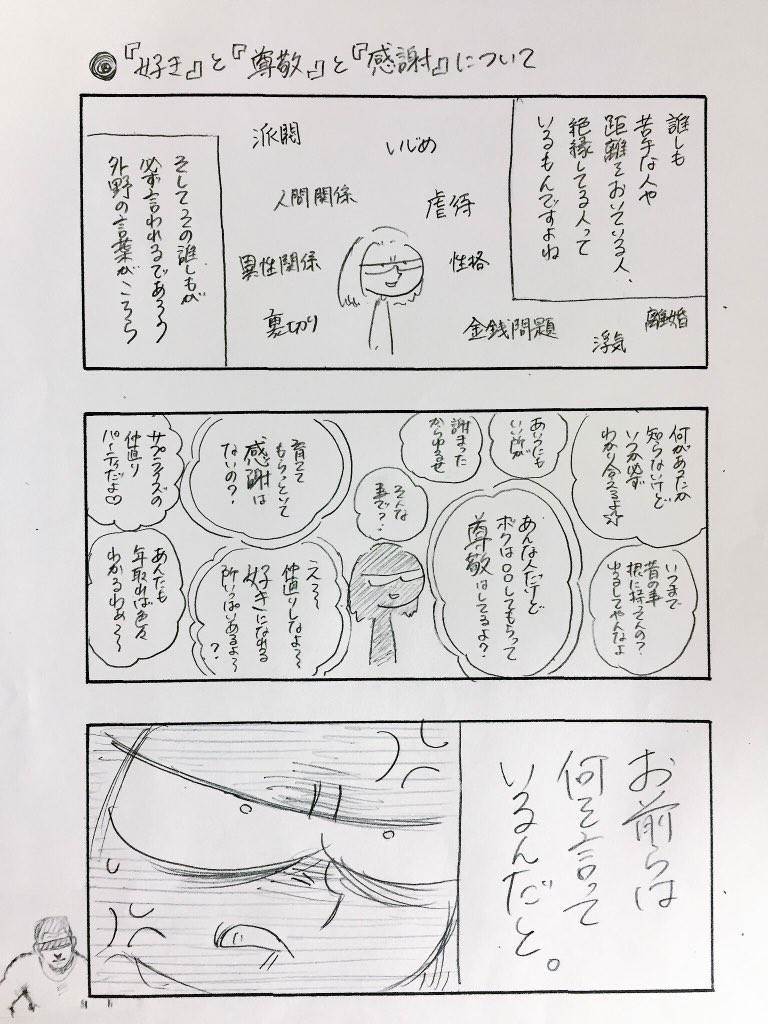 『好き』と『尊敬』と『感謝』について
誰しも
苦手な人や
距離をおいている人、
絶縁してる人って
いるもんですよね
派閥
いじめ
人間関係
虐待
異性関係
性格
裏切り
金銭問題
浮気
離婚
そしてその誰しもが
必ず言われるであろう
外野の言葉が
こちら
何があったか
知らないけど
いつか必ず
わかり合えるよ
いつまで
昔の事
根に持ってんの?
ゆるしてやんなよ
あいつにも
いい所が
あんな人だけど
ボクは〇〇してもらって
尊敬はしてるよ?
謝まった
からゆるせ
そんな
事で?
育てて
もらっといて
感謝は
ないの?
え〜〜
仲直りしなよ〜〜
好きになれる
所いっぱいあるよ〜〜
?
サプライズの
仲直り
パーティだよ♡
あんたも
年取れば色々
わかるわよ〜〜
お前らは
何を言って
いるんだと。